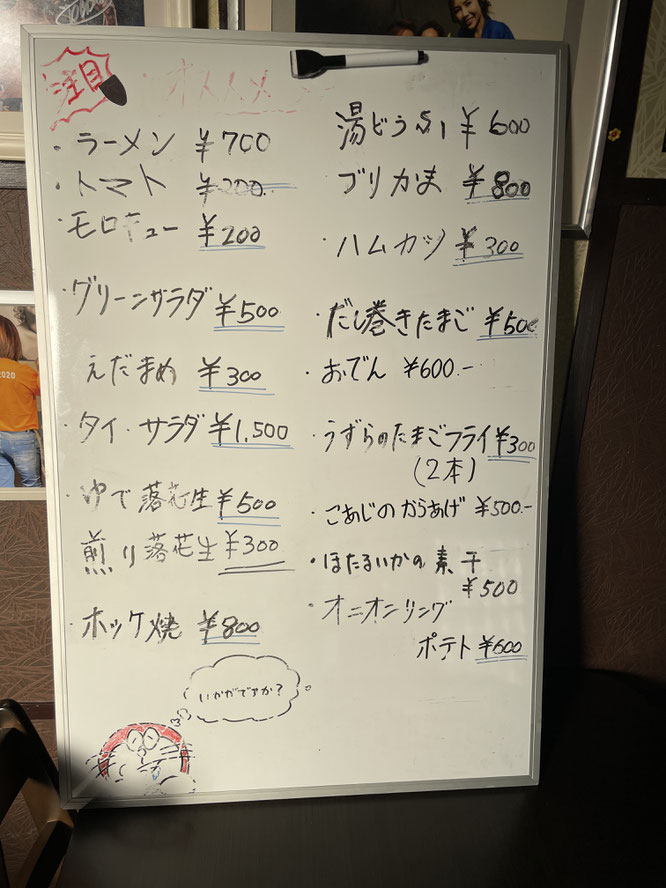 注目
・オススメ
・ラーメン ¥700
・トマト ¥200.
・モロキュー ¥200
・グリーンサラダ ¥500
えだまめ ¥300
・タイ・サラダ ¥1,500
・ゆで落花生 ¥500
煎り落花生 ¥300
・ホッケ焼 ¥800
いかがですか?
湯どうふ ¥600
ブリかま ¥800
・ハムカツ ¥300
・だし巻きたまご ¥500
・おでん ¥600.-
・うずらのたまごフライ ¥300
(2本)
・こあじのからあげ ¥500.-
・ほたるいかの素干
¥500
・オニオンリング
ポテト ¥600
2020